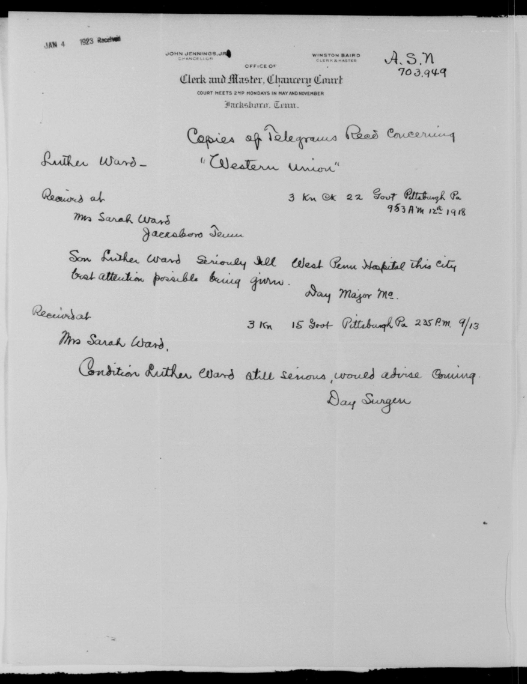 JAN 4 1923 Received
JOHN JENNINGS, JR.
CHANCELLOR
WINSTON BAIRD
CLERK & MASTER
A.S.N
703,949
OFFICE OF
Clerk and Master, Chancery Court
COURT MEETS 2ND MONDAYS IN MAY AND NOVEMBER
Jacksboro, Tenn.
Copies of Telegrams Read Concerning
Luther Ward - "Western Union"
Received at 3 Kn Ck 22 Govt Pittsburgh Pa
953 AM 12th 1918
Mrs Sarah Ward
Jacksboro Tenn
Son Luther Ward Seriously Ill West Penn Hospital this City
best attention possible being given.
Day Major Mc.
Received at 3 Kn 15 Govt Pittsburgh Pa 235 P.M. 9/13
Mrs Sarah Ward,
Condition Luther Ward still serious, would advise Coming.
Day Surgen